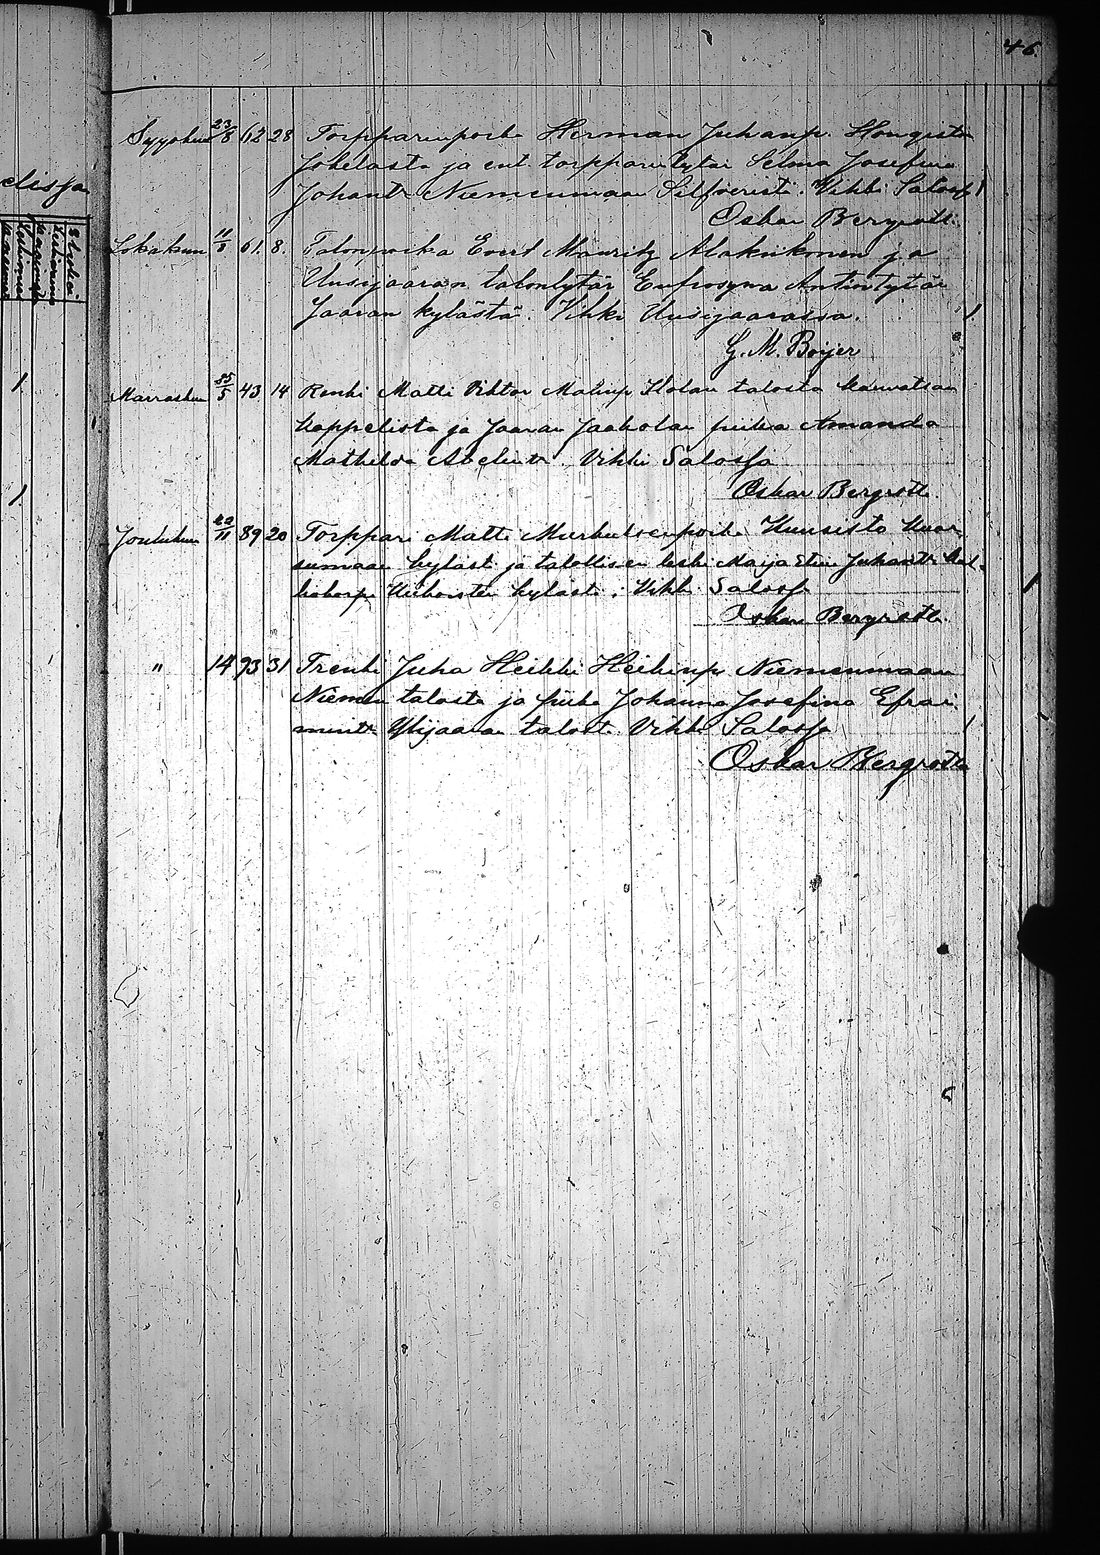 46.
Syyskuu 23/8 62 28 Torpparinpoika Herman Juhanp. Hongisto
Jokelasta ja ent torpparintytär Selma Josefina
Johantr Niemenmaan Silfverist. Vihki Salossa 1
Oskar Bergroth.
Lokakuu 11/5 61. 8. Talonpoika Evert Mauritz Alakiikonen ja
Uusijaaran talontytär Eufrosyna Antintytär
Jaaran kylästä. Vihki Uusijaarassa. 1
G. M. Boijer
Marraskuu 25/5 43 14 Renki Matti Viktor Matinp Holan talosta Kauvatsan
kappelista ja Jaaran Jaakolan piika Amanda
Mathilda Abelintr. Vihki Salossa
Oskar Bergroth.
Joulukuu 22/11 89 20 Torppari Matti Markuksenpoika Kuusisto
sumaan kyläst ja talollisen leski Maija Stiina Juhantr
kylästä. Vihki Salossa 1
Oskar Bergroth.
" 14 93 31 Trenki Juha Heikki Heikinp. Niemenmaan
Niemen talosta ja piika Johanna Josefina Efrai
mintr Ylijaaran talost. Vihki Salossa 1
Oskar Bergroth